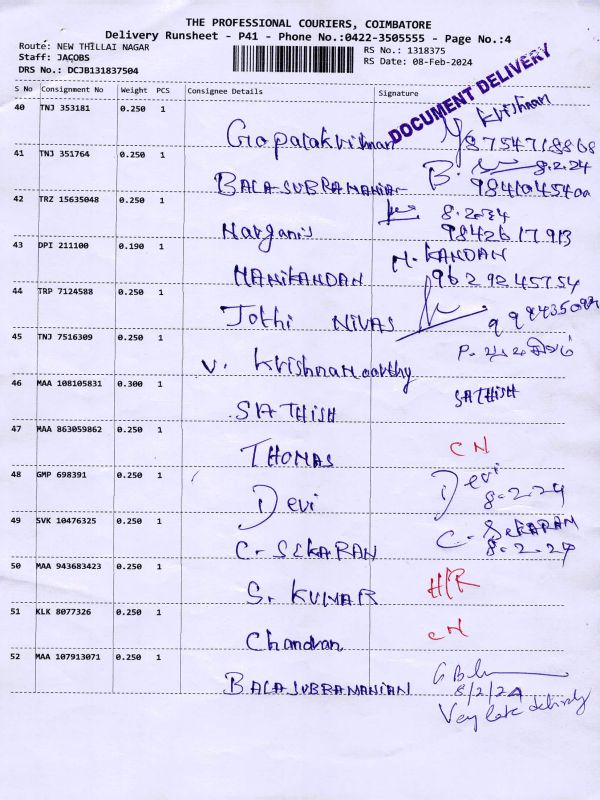 THE PROFESSIONAL COURIERS, COIMBATORE
Delivery Runsheet - P41 - Phone No.:0422-3505555 - Page No.:4
Route: NEW THILLAI NAGAR
RS No.: 1318375
Staff: JACOBS
RS Date: 08-Feb-2024
DRS No.: DCJB131837504
DOCUMENT DELIVERY
S No Consignment No Weight PCS Consignee Details Signature
40 TNJ 353181 0.250 1
Gopalakrishnan Krishnan
8754718868
41 TNJ 351764 0.250 1
BALASUBRAMANIAN B. 8.2.24
9841045400
42 TRZ 15635048 0.250 1
Narganis 8.2.24
9842617913
43 DPI 211100 0.190 1
MANIKANDAN M. KANDAN
9629245754
44 TRP 7124588 0.250 1
Jothi NIVAS
45 TNJ 7516309 0.250 1
V. Krishnamoorthy P.
46 MAA 108105831 0.300 1
SATHISH SATHISH
47 MAA 863059862 0.250 1
THOMAS CN
48 GMP 698391 0.250 1
Devi Devi
8-2-24
49 SVK 10476325 0.250 1
C. SEKARAN C. SEKARAN
8-2-24
50 MAA 943683423 0.250 1
S. KUMAR H/R
51 KLK 8077326 0.250 1
Chandran CN
52 MAA 107913071 0.250 1
BALASUBRAMANIAN
8/2/24
Very late delivery